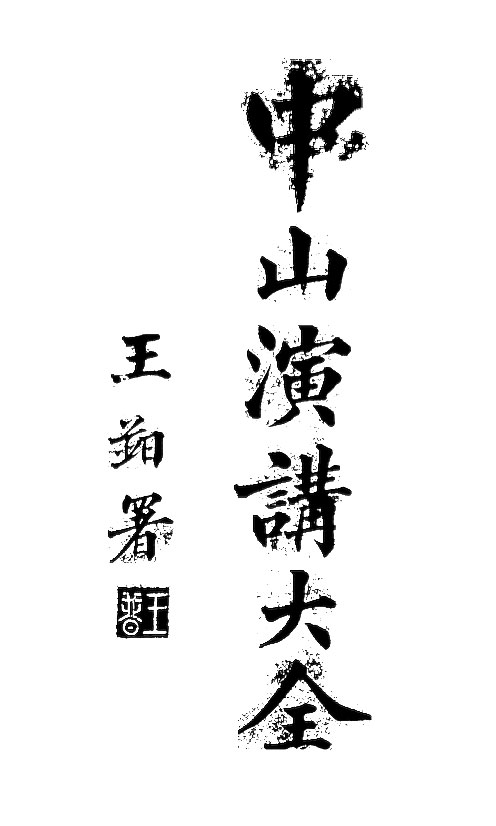 中山演講大全
王㬜署
王㬜